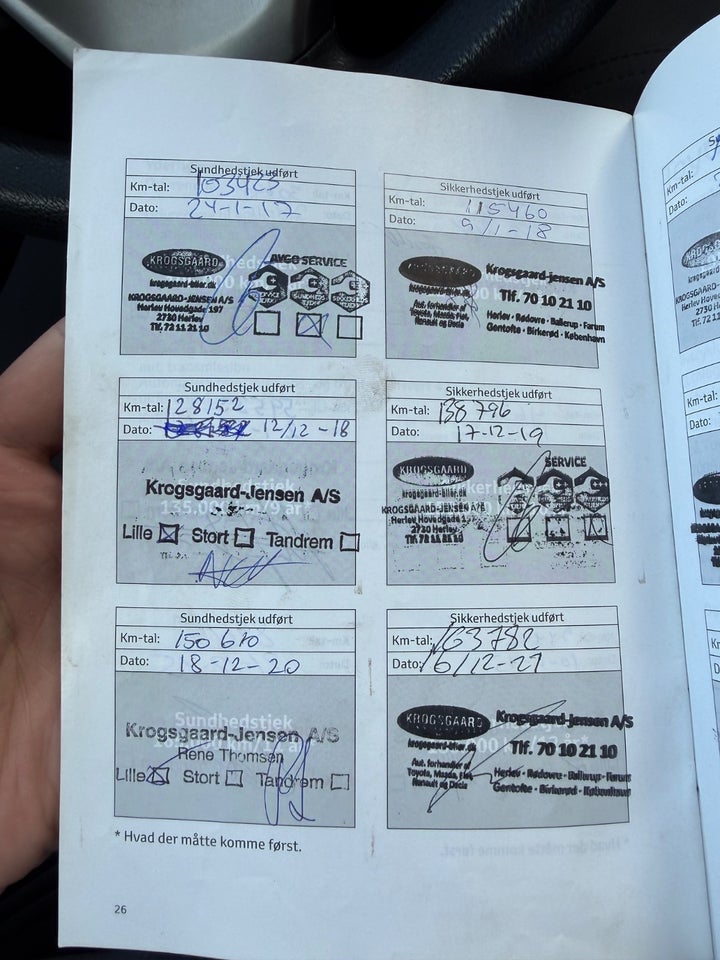 Sundhedstjek udført
Km-tal: 103423
Dato: 24-1-17
KROGSGAARD
krogsgaard-biler.dk
KROGSGAARD-JENSEN A/S
Herlev Hovedgade 197
2730 Herlev
Tlf. 72 11 21 10
AVGO SERVICE
SUNDHEDS
Sikkerhedstjek udført
115460
Km-tal:
Dato: 9/1-18
Krogsgaard-jensen A/S
Tlf. 70 10 21 10
Aut. forhandler af
Toyota, Mazda, Fiat
Renault og Dacia
Herlev · Rødovre · Ballerup · Farum
Gentofte · Birkerød · København
Sundhedstjek udført
Km-tal: 128152
Dato: 12/12-18
Sundhedstjek
135.000
Krogsgaard-Jensen A/S
Lille Stort Tandrem
Sikkerhedstjek udført
Km-tal: 138796
Dato: 17-12-19
KROGSGAARD
krogsgaard-biler.dk
KROGSGAARD-JENSEN A/S
Herlev Hovedgade 197
2730 Herlev
SERVICE
Sundhedstjek udført
Km-tal: 150610
Dato: 18-12-20
Sundhedstjek
Krogsgaard-Jensen A/S
Rene Thomsen
Lille Stort Tandrem
Sikkerhedstjek udført
Km-tal: 163782
Dato: 6/12-21
KROGSGAARD
krogsgaard-biler.dk
Krogsgaard-jensen A/S
Tlf. 70 10 21 10
Aut. forhandler af
Toyota, Mazda, Fiat
Renault og Dacia
Herlev · Rødovre · Ballerup · Farum
Gentofte · Birkerød · København
* Hvad der måtte komme først.
26